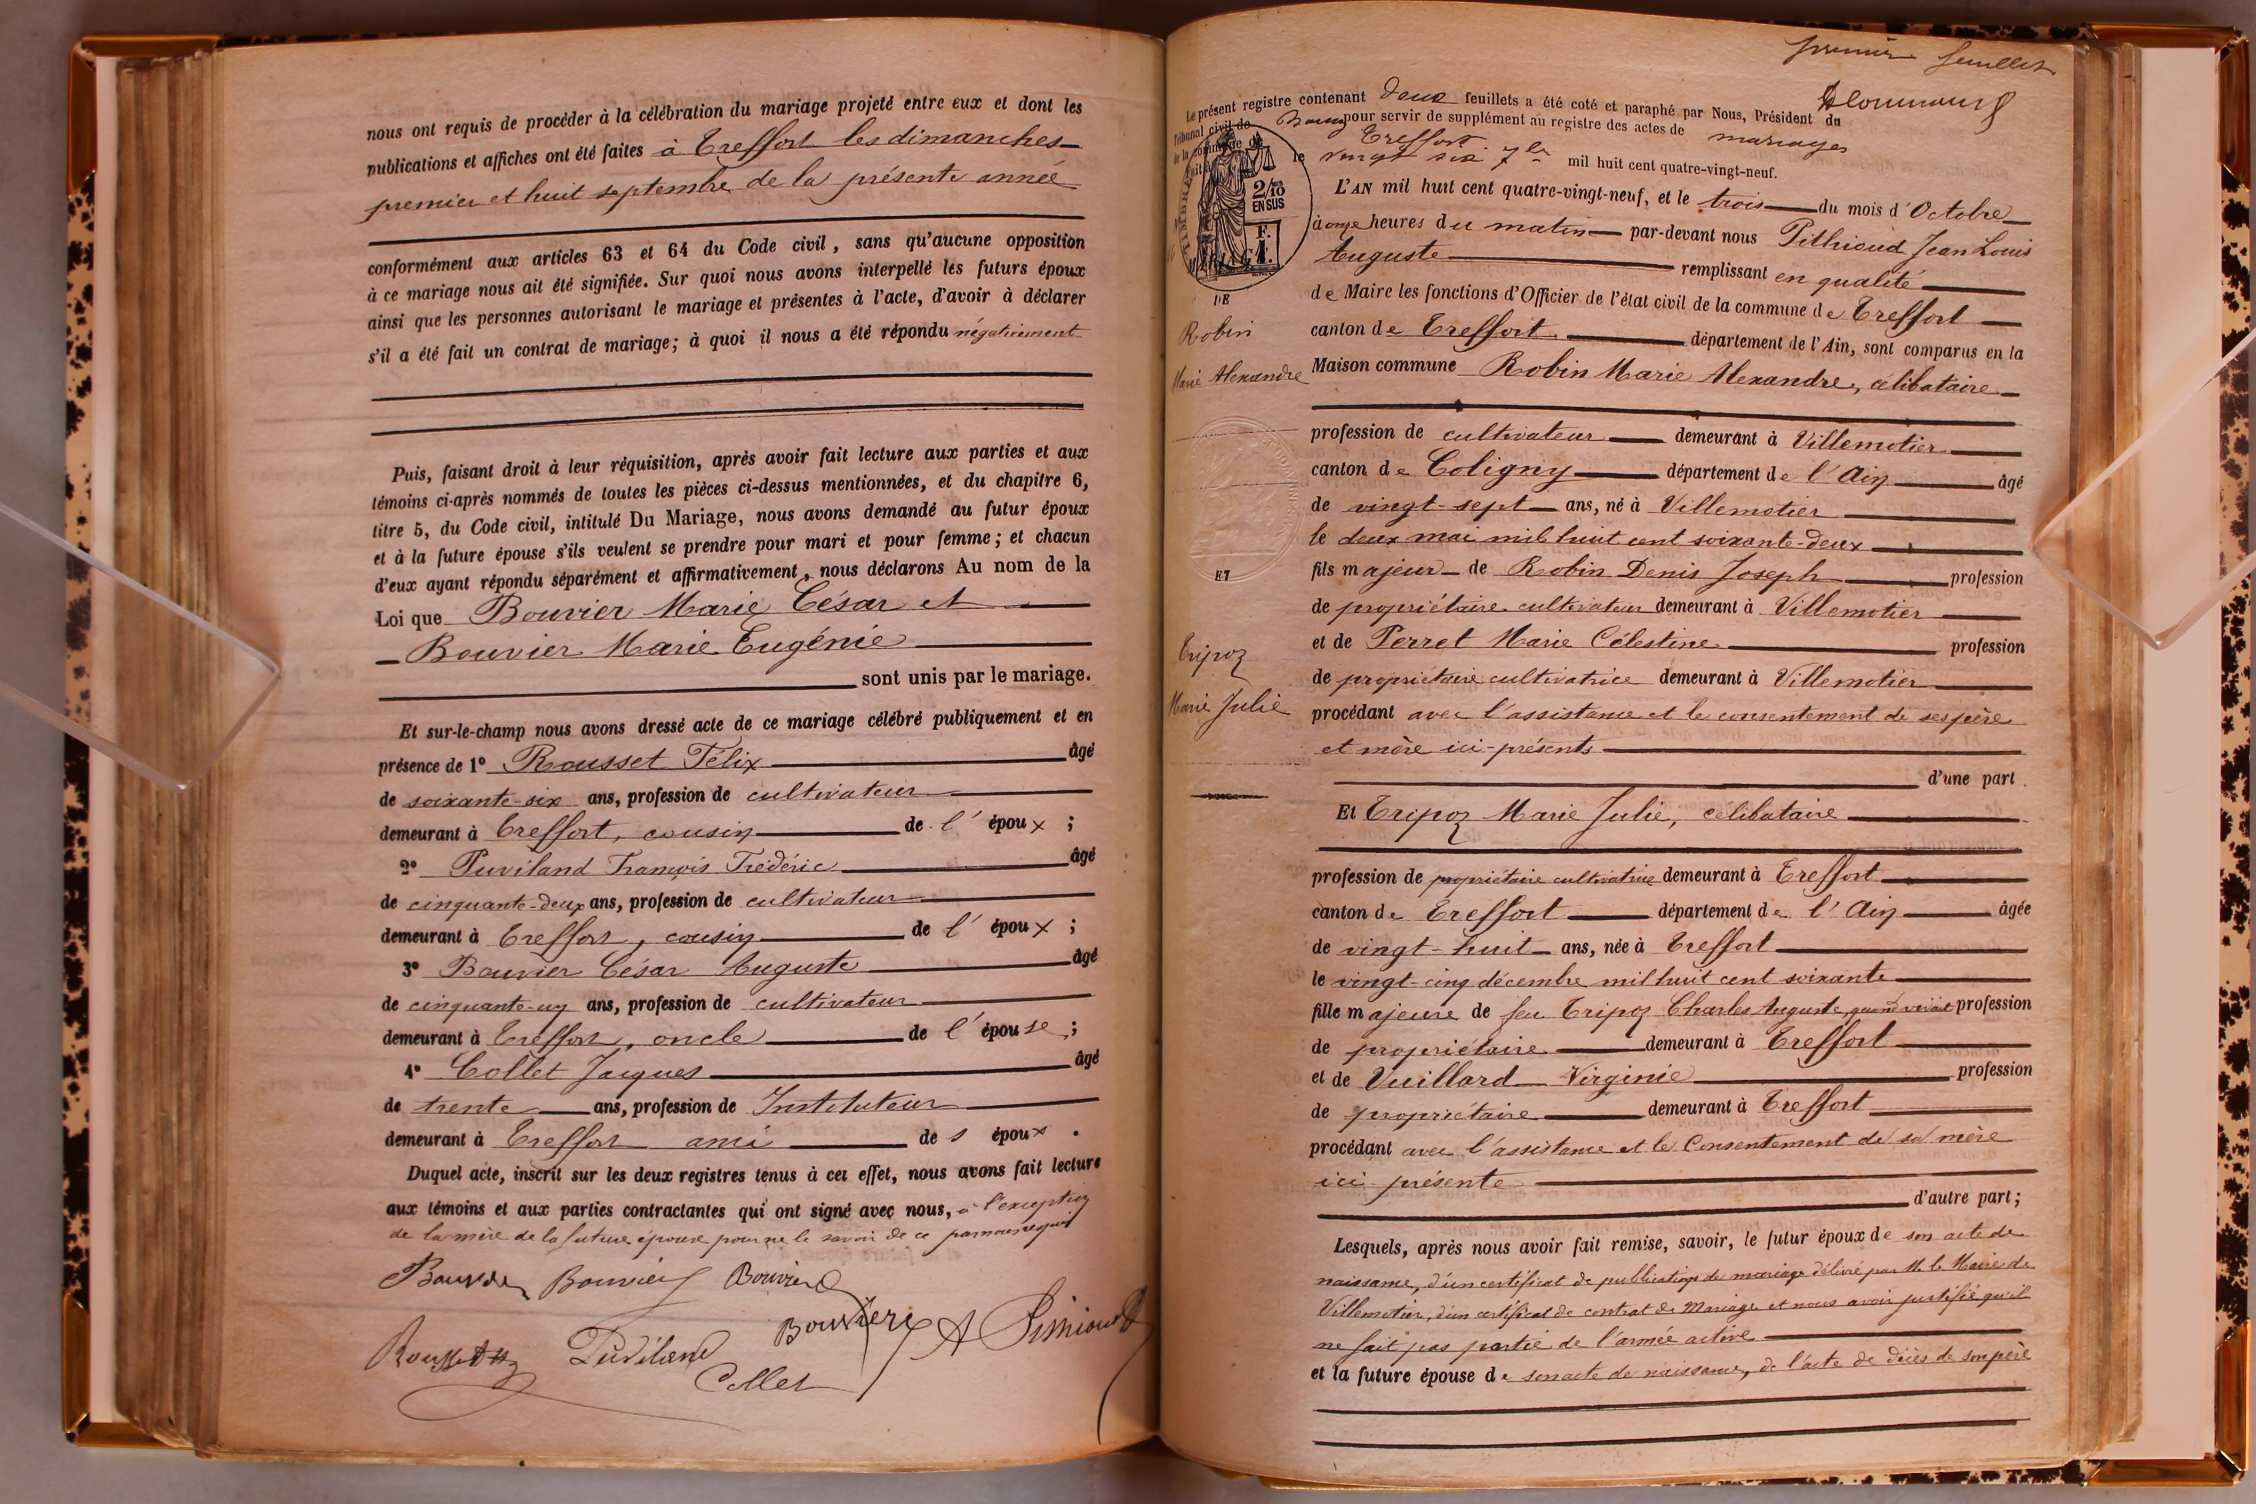 nous ont requis de procéder à la célébration du mariage projeté entre eux et dont les
publications et affiches ont été faites à Treffort les dimanches
premier et huit septembre de la présente année
conformément aux articles 63 et 64 du Code civil, sans qu'aucune opposition
à ce mariage nous ait été signifiée. Sur quoi nous avons interpellé les futurs époux
ainsi que les personnes autorisant le mariage et présentes à l'acte, d'avoir à déclarer
s'il a été fait un contrat de mariage; à quoi il nous a été répondu négativement
Puis, faisant droit à leur réquisition, après avoir fait lecture aux parties et aux
témoins ci-après nommés de toutes les pièces ci-dessus mentionnées, et du chapitre 6,
titre 5, du Code civil, intitulé Du Mariage, nous avons demandé au futur époux
et à la future épouse s'ils veulent se prendre pour mari et pour femme; et chacun
d'eux ayant répondu séparément et affirmativement, nous déclarons Au nom de la
Loi que Bouvier Marie César et
Bouvier Marie Eugénie
sont unis par le mariage.
Et sur-le-champ nous avons dressé acte de ce mariage célébré publiquement et en
présence de 1° Rousset Félix âgé
de soixante-six ans, profession de cultivateur
demeurant à Treffort, cousin de l'époux ;
2° Puviland François Frédéric âgé
de cinquante-deux ans, profession de cultivateur
demeurant à Treffort, cousin de l'époux ;
3° Bouvier César Auguste âgé
de cinquante-un ans, profession de cultivateur
demeurant à Treffort, oncle de l'épouse ;
4° Collet Jacques âgé
de trente ans, profession de Instituteur
demeurant à Treffort ami des époux .
Duquel acte, inscrit sur les deux registres tenus à cet effet, nous avons fait lecture
aux témoins et aux parties contractantes qui ont signé avec nous, à l'exception
de la mère de la future épouse pour ne le savoir de ce par nous requis
Bouvier Bouvier Bouvier
Bouvier A Pithioud
Rousset Puviland
Collet
premier feuillet
Le présent registre contenant deux feuillets a été coté et paraphé par Nous, Président du
Tribunal civil de Bourg pour servir de supplément au registre des actes de mariages
de la commune de Treffort
Fait à le vingt six 7bre mil huit cent quatre-vingt-neuf.
TIMBRE
2/10
EN SUS
F.
1.
L'AN mil huit cent quatre-vingt-neuf, et le trois du mois d'Octobre
à onze heures du matin par-devant nous Pithioud Jean Louis
Auguste remplissant en qualité
de Maire les fonctions d'Officier de l'état civil de la commune de Treffort
canton de Treffort département de l'Ain, sont comparus en la
Maison commune Robin Marie Alexandre, célibataire
DE
Robin
Marie Alexandre
ET
Tripoz
Marie Julie
profession de cultivateur demeurant à Villemotier
canton de Coligny département de l'Ain âgé
de vingt-sept ans, né à Villemotier
le deux mai mil huit cent soixante-deux
fils majeur de Robin Denis Joseph profession
de propriétaire cultivateur demeurant à Villemotier
et de Perret Marie Célestine profession
de propriétaire cultivatrice demeurant à Villemotier
procédant avec l'assistance et le consentement de ses père
et mère ici-présents
d'une part
Et Tripoz Marie Julie, célibataire
profession de propriétaire cultivatrice demeurant à Treffort
canton de Treffort département de l'Ain âgée
de vingt-huit ans, née à Treffort
le vingt-cinq décembre mil huit cent soixante
fille majeure de feu Tripoz Charles Auguste, quand vivait profession
de propriétaire demeurant à Treffort
et de Vuillard Virginie profession
de propriétaire demeurant à Treffort
procédant avec l'assistance et le Consentement de sa mère
ici présente
d'autre part;
Lesquels, après nous avoir fait remise, savoir, le futur époux de son acte de
naissance, d'un certificat de publications de mariage délivré par M. le Maire de
Villemotier, d'un certificat de contrat de Mariage et nous avoir justifié qu'il
ne fait pas partie de l'armée active
et la future épouse de son acte de naissance, de l'acte de décès de son père